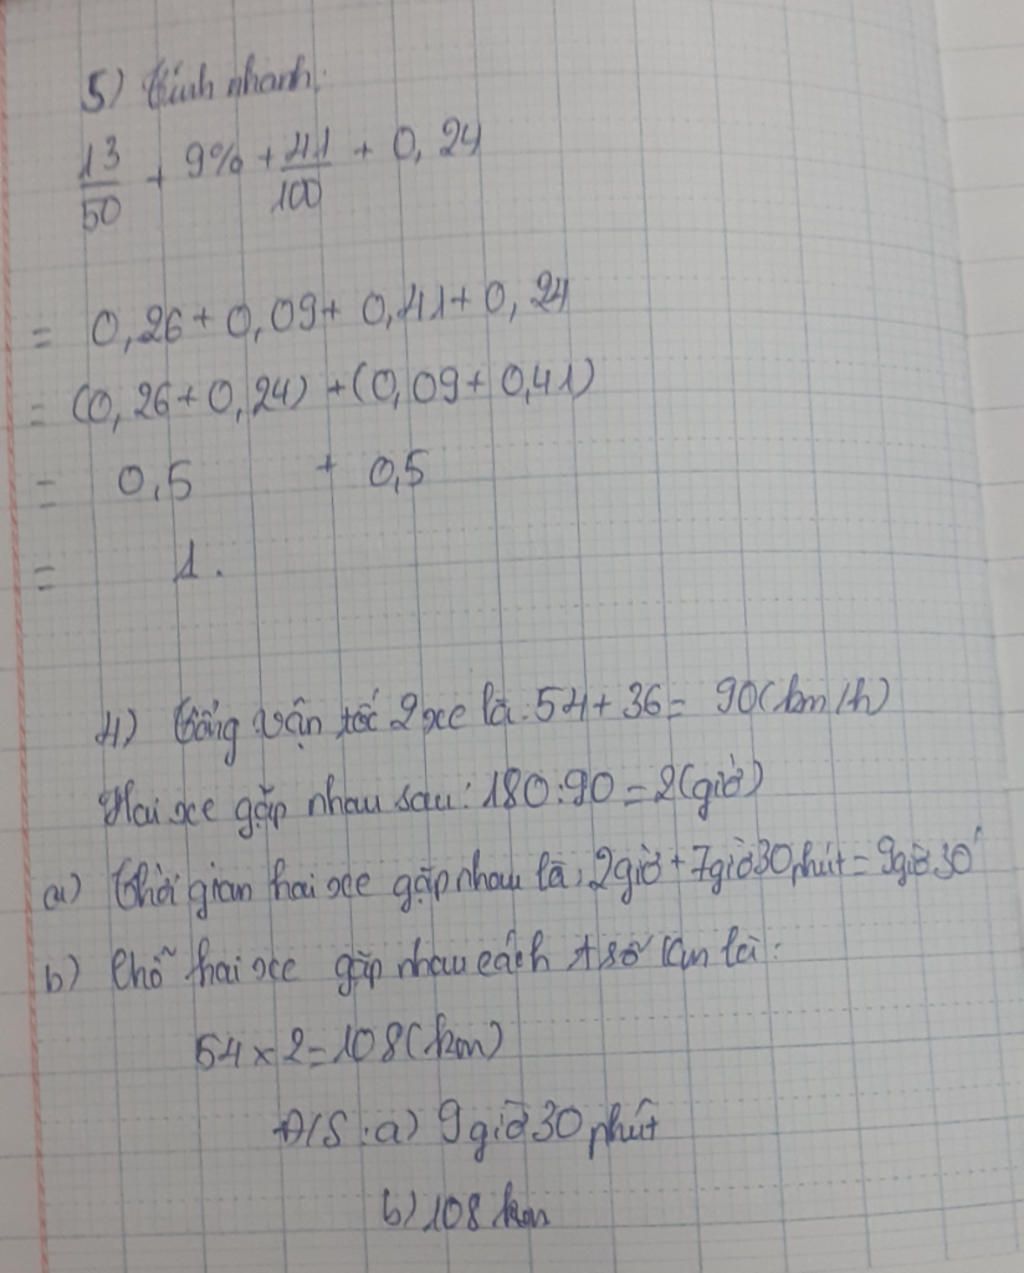 5) Tính nhanh:
13/50 + 9% + 41/100 + 0,24
= 0,26 + 0,09 + 0,41 + 0,24
= (0,26 + 0,24) + (0,09 + 0,41)
= 0,5 + 0,5
= 1.
4) Tổng vận tốc 2 xe là: 54 + 36 = 90 (km/h)
Hai xe gặp nhau sau: 180 : 90 = 2 (giờ)
a) Thời gian hai xe gặp nhau là: 2 giờ + 7 giờ 30 phút = 9 giờ 30'
b) Chỗ hai xe gặp nhau cách A số km là:
54 x 2 = 108 (km)
Đ/S: a) 9 giờ 30 phút
b) 108 km